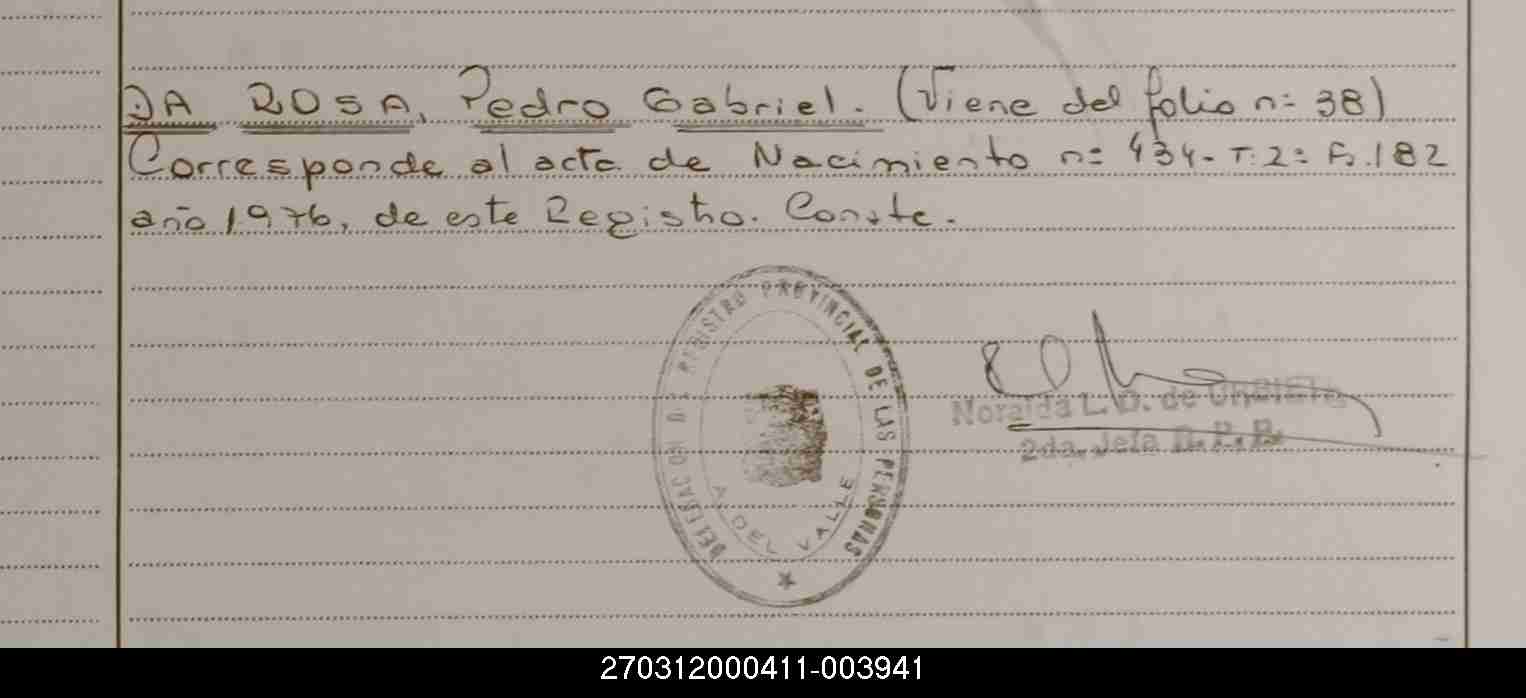 DA ROSA, Pedro Gabriel. (Viene del folio n= 38)
Corresponde al acta de Nacimiento n= 434- T. 2= Fº. 182
año 1976, de este Registro. Conste.
DELEGACION DEL REGISTRO PROVINCIAL DE LAS PERSONAS
A. DEL VALLE
Noraida L. D. de URBIETA
2da. Jefa D.P.P.
270312000411-003941